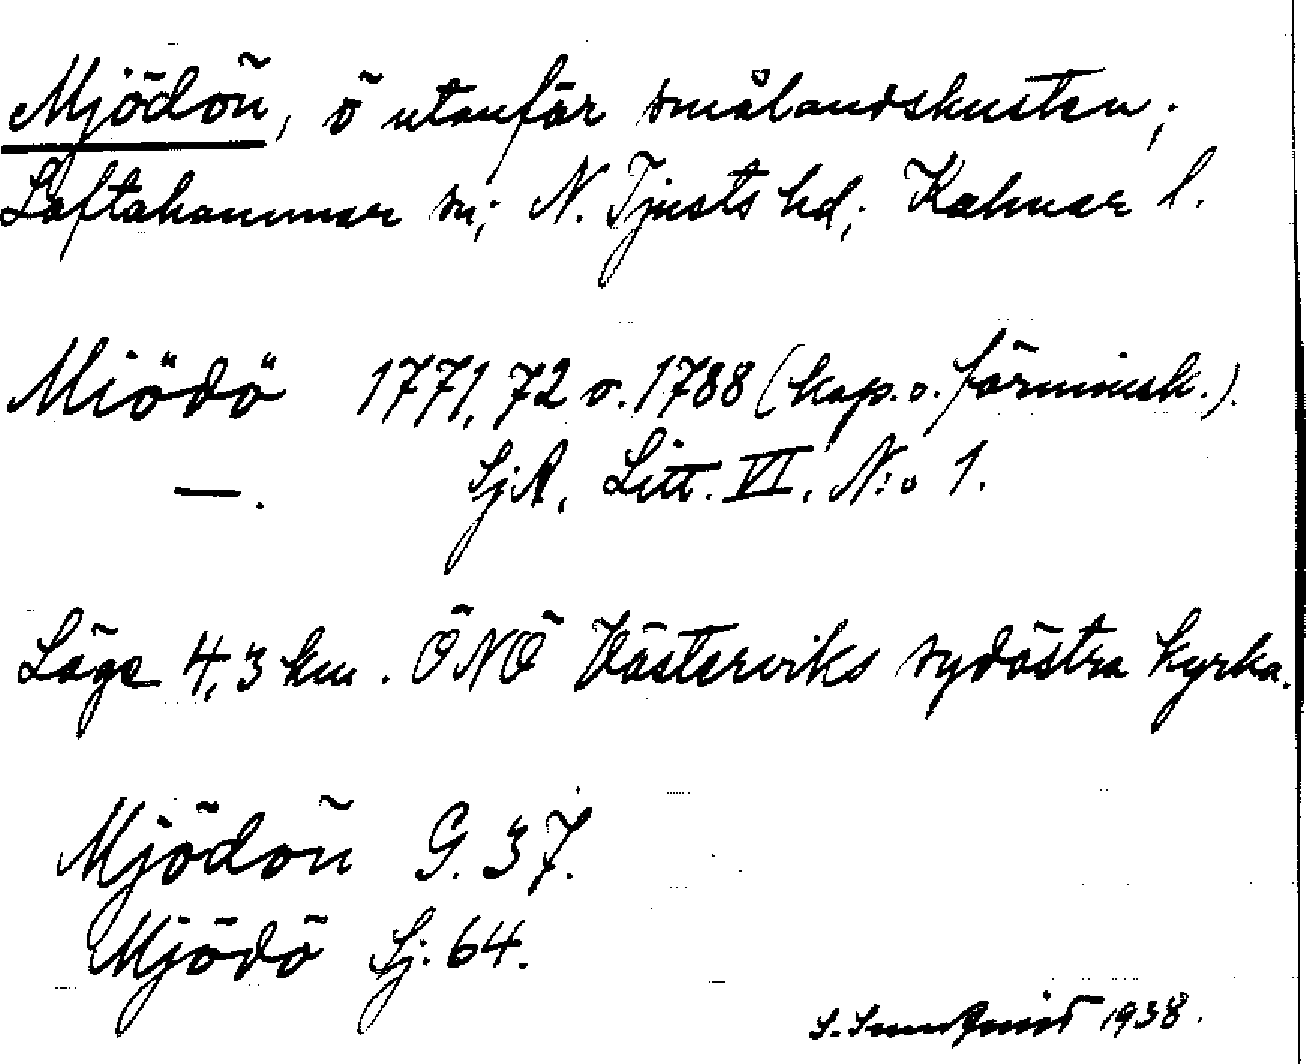 Mjödön, ö utanför smålandskusten;
Loftahammar sn; N. Tjusts hd; Kalmar l.
Miödö 1771, 72 o. 1788 (kop. o. förminsk.).
—. SjA, Litt. VI, N:o 1.
Läge 4,3 km. ÖNÖ Västerviks sydöstra kyrka.
Mjödön G. 37.
Mjödö Sj. 64.
1938.